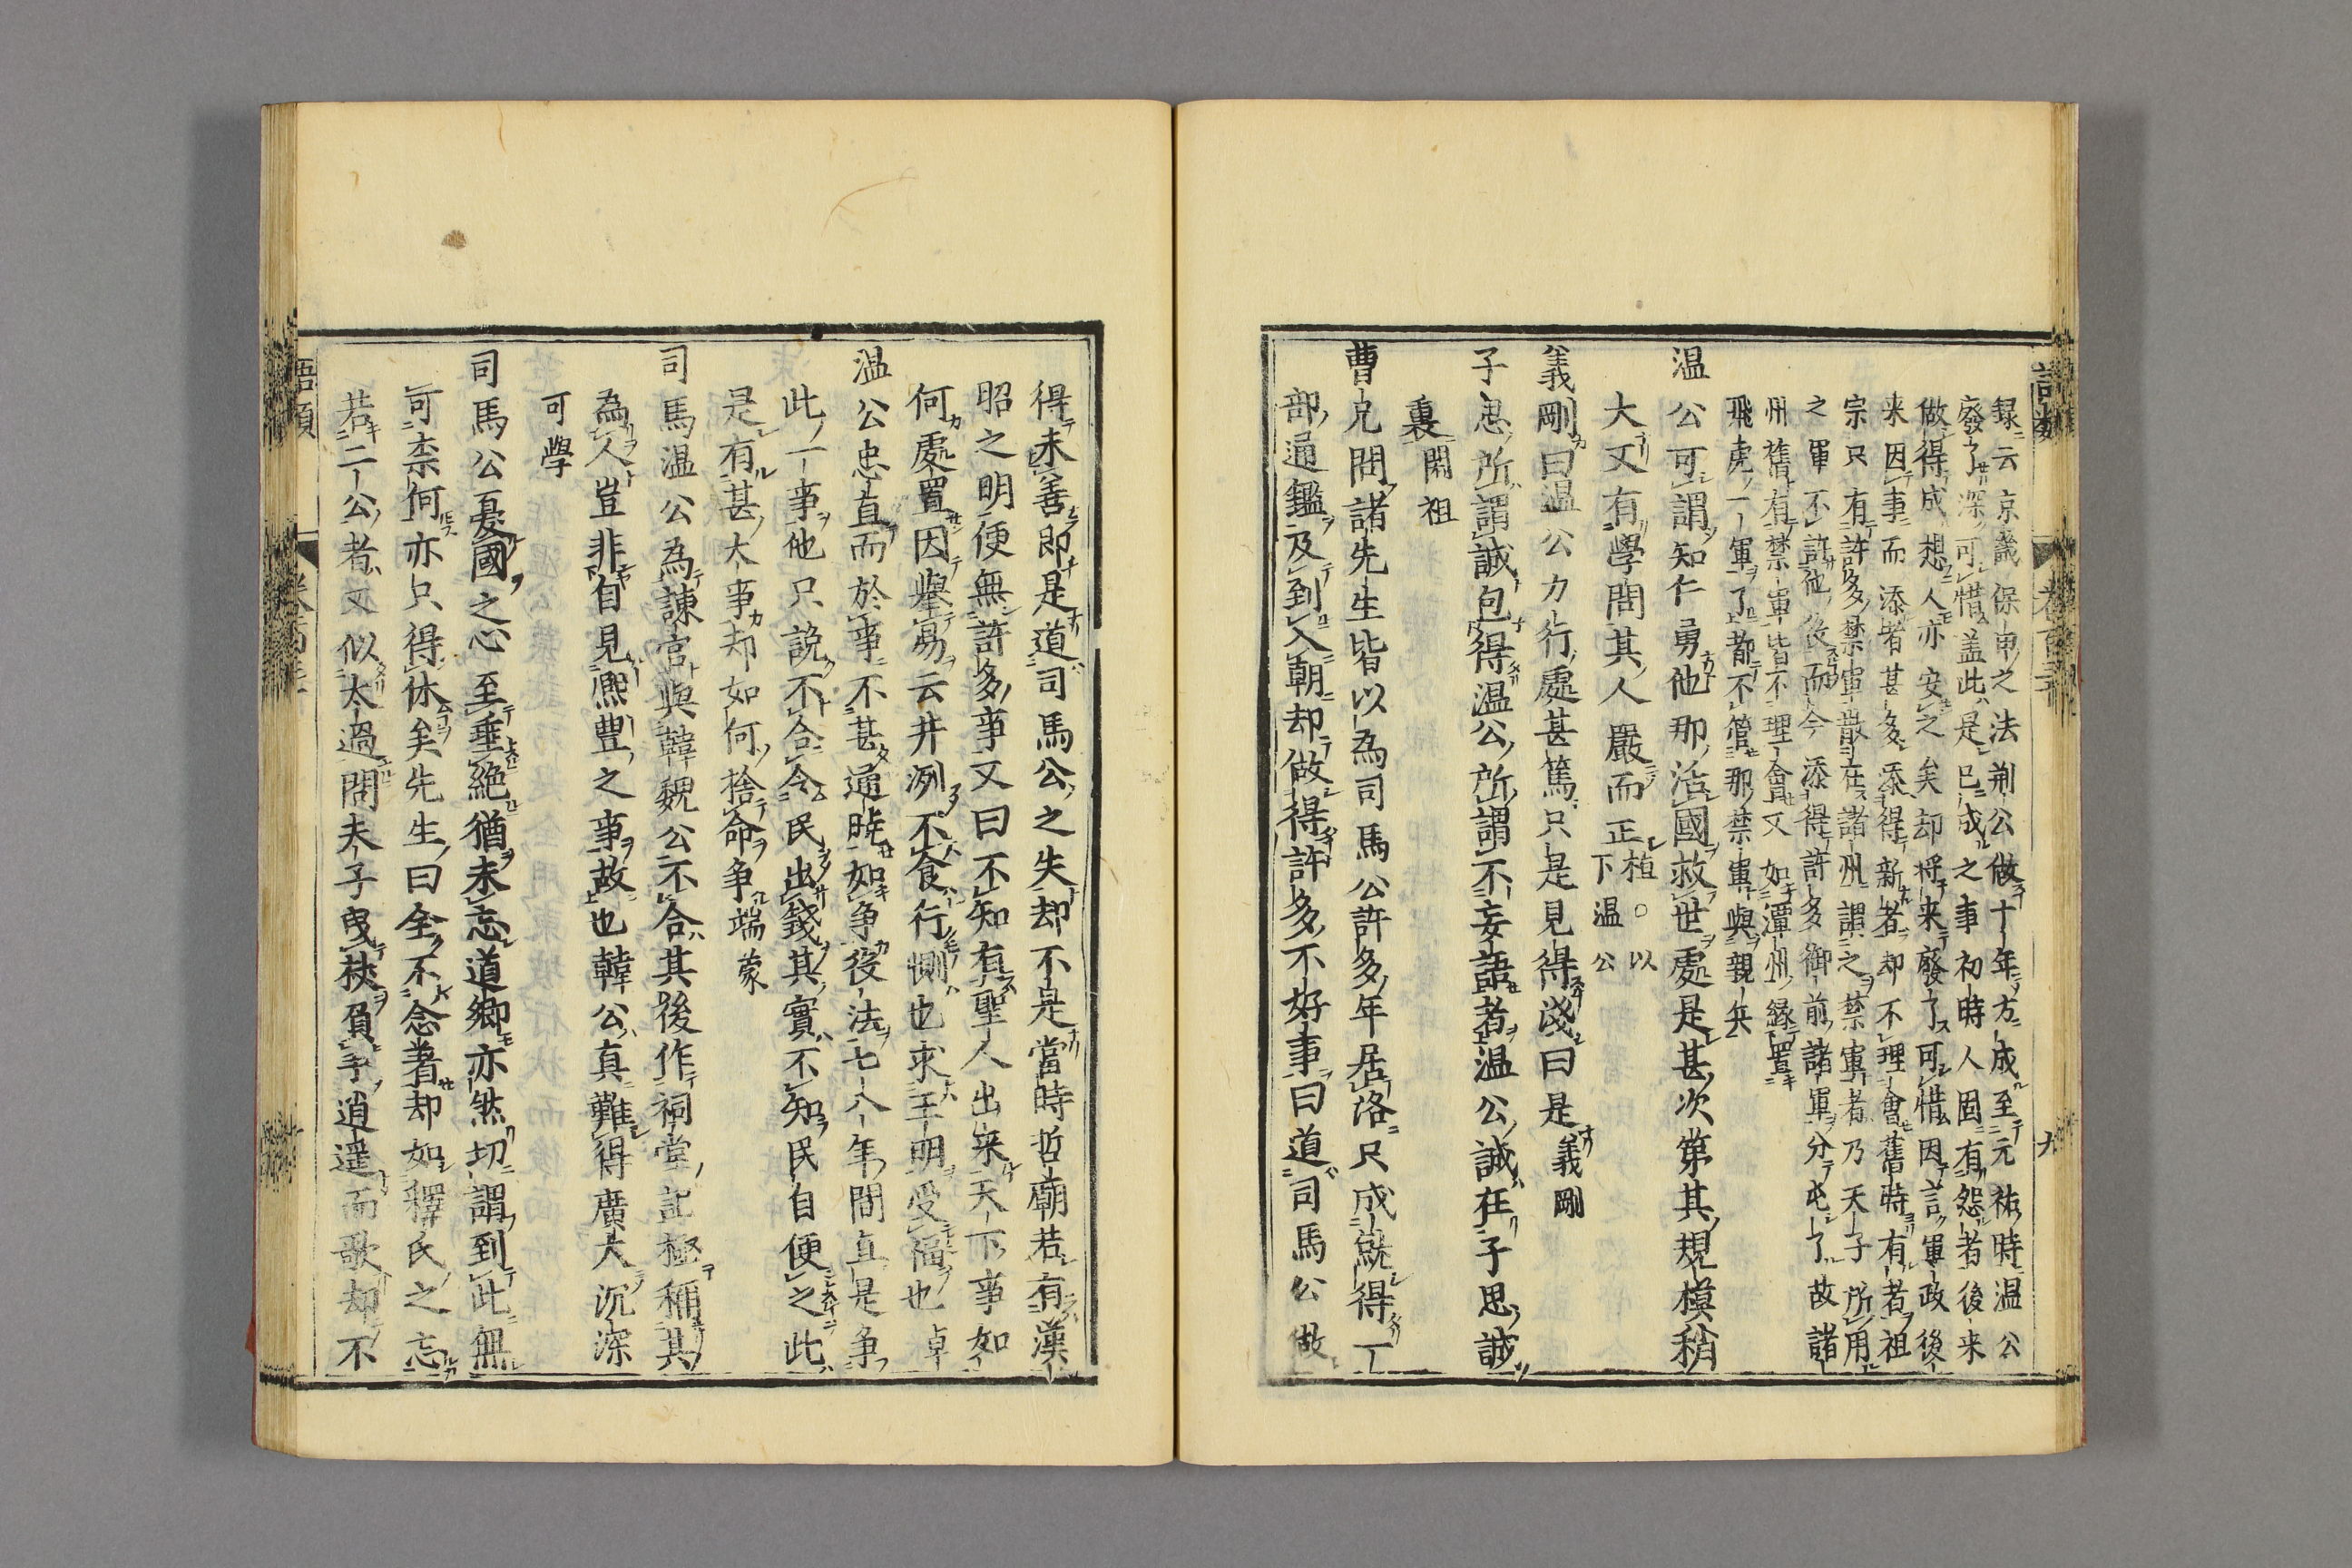 録云京畿保甲之法荆公做十年方成至元祐時温公
廢了深可惜盖此是已成之事初時人固有怨者後来
做得成想人亦安之矣却将来廢了可惜因言軍政後
来因事而添者甚多添得新者却不理會舊時有者祖
宗只有許多禁軍散在諸州謂之禁軍者乃天子所用
之軍不許他役而今添得許多御前諸軍分屯了故諸
州舊有禁軍皆不理會又如潭州縁置
飛虎一軍了都不管那禁軍與親兵
温公可謂知仁勇他那活國救世處是甚次第其規模稍
大又有學問其人嚴而正植○以
下温公
義剛曰温公力行處甚篤只是見得淺曰是義剛
子思所謂誠包得温公所謂不妄語者温公誠在子思誠
裏閎祖
曹兄問諸先生皆以為司馬公許多年居洛只成就得一
部通鑑及到入朝却做得許多不好事曰道司馬公做
得未善即是道司馬公之失却不是當時哲廟若有漢
昭之明便無許多事又曰不知有聖人出来天下事如
何處置因舉易云井洌不食行惻也求王明受福也卓
温公忠直而於事不甚通曉如争役法七八年間直是争
此一事他只説不合令民出錢其實不知民自便之此
是有甚大事却如何捨命争端蒙
司馬温公為諫官與韓魏公不合其後作祠堂記極稱其
為人豈非自見熙豐之事故也韓公真難得廣大沉深
可學
司馬公憂國之心至垂絶猶未忘道卿亦然切謂到此無
可柰何亦只得休矣先生曰全不念著却如釋氏之忘
若二公者又似太過問夫子曳杖負手逍遥而歌却不
語類
九